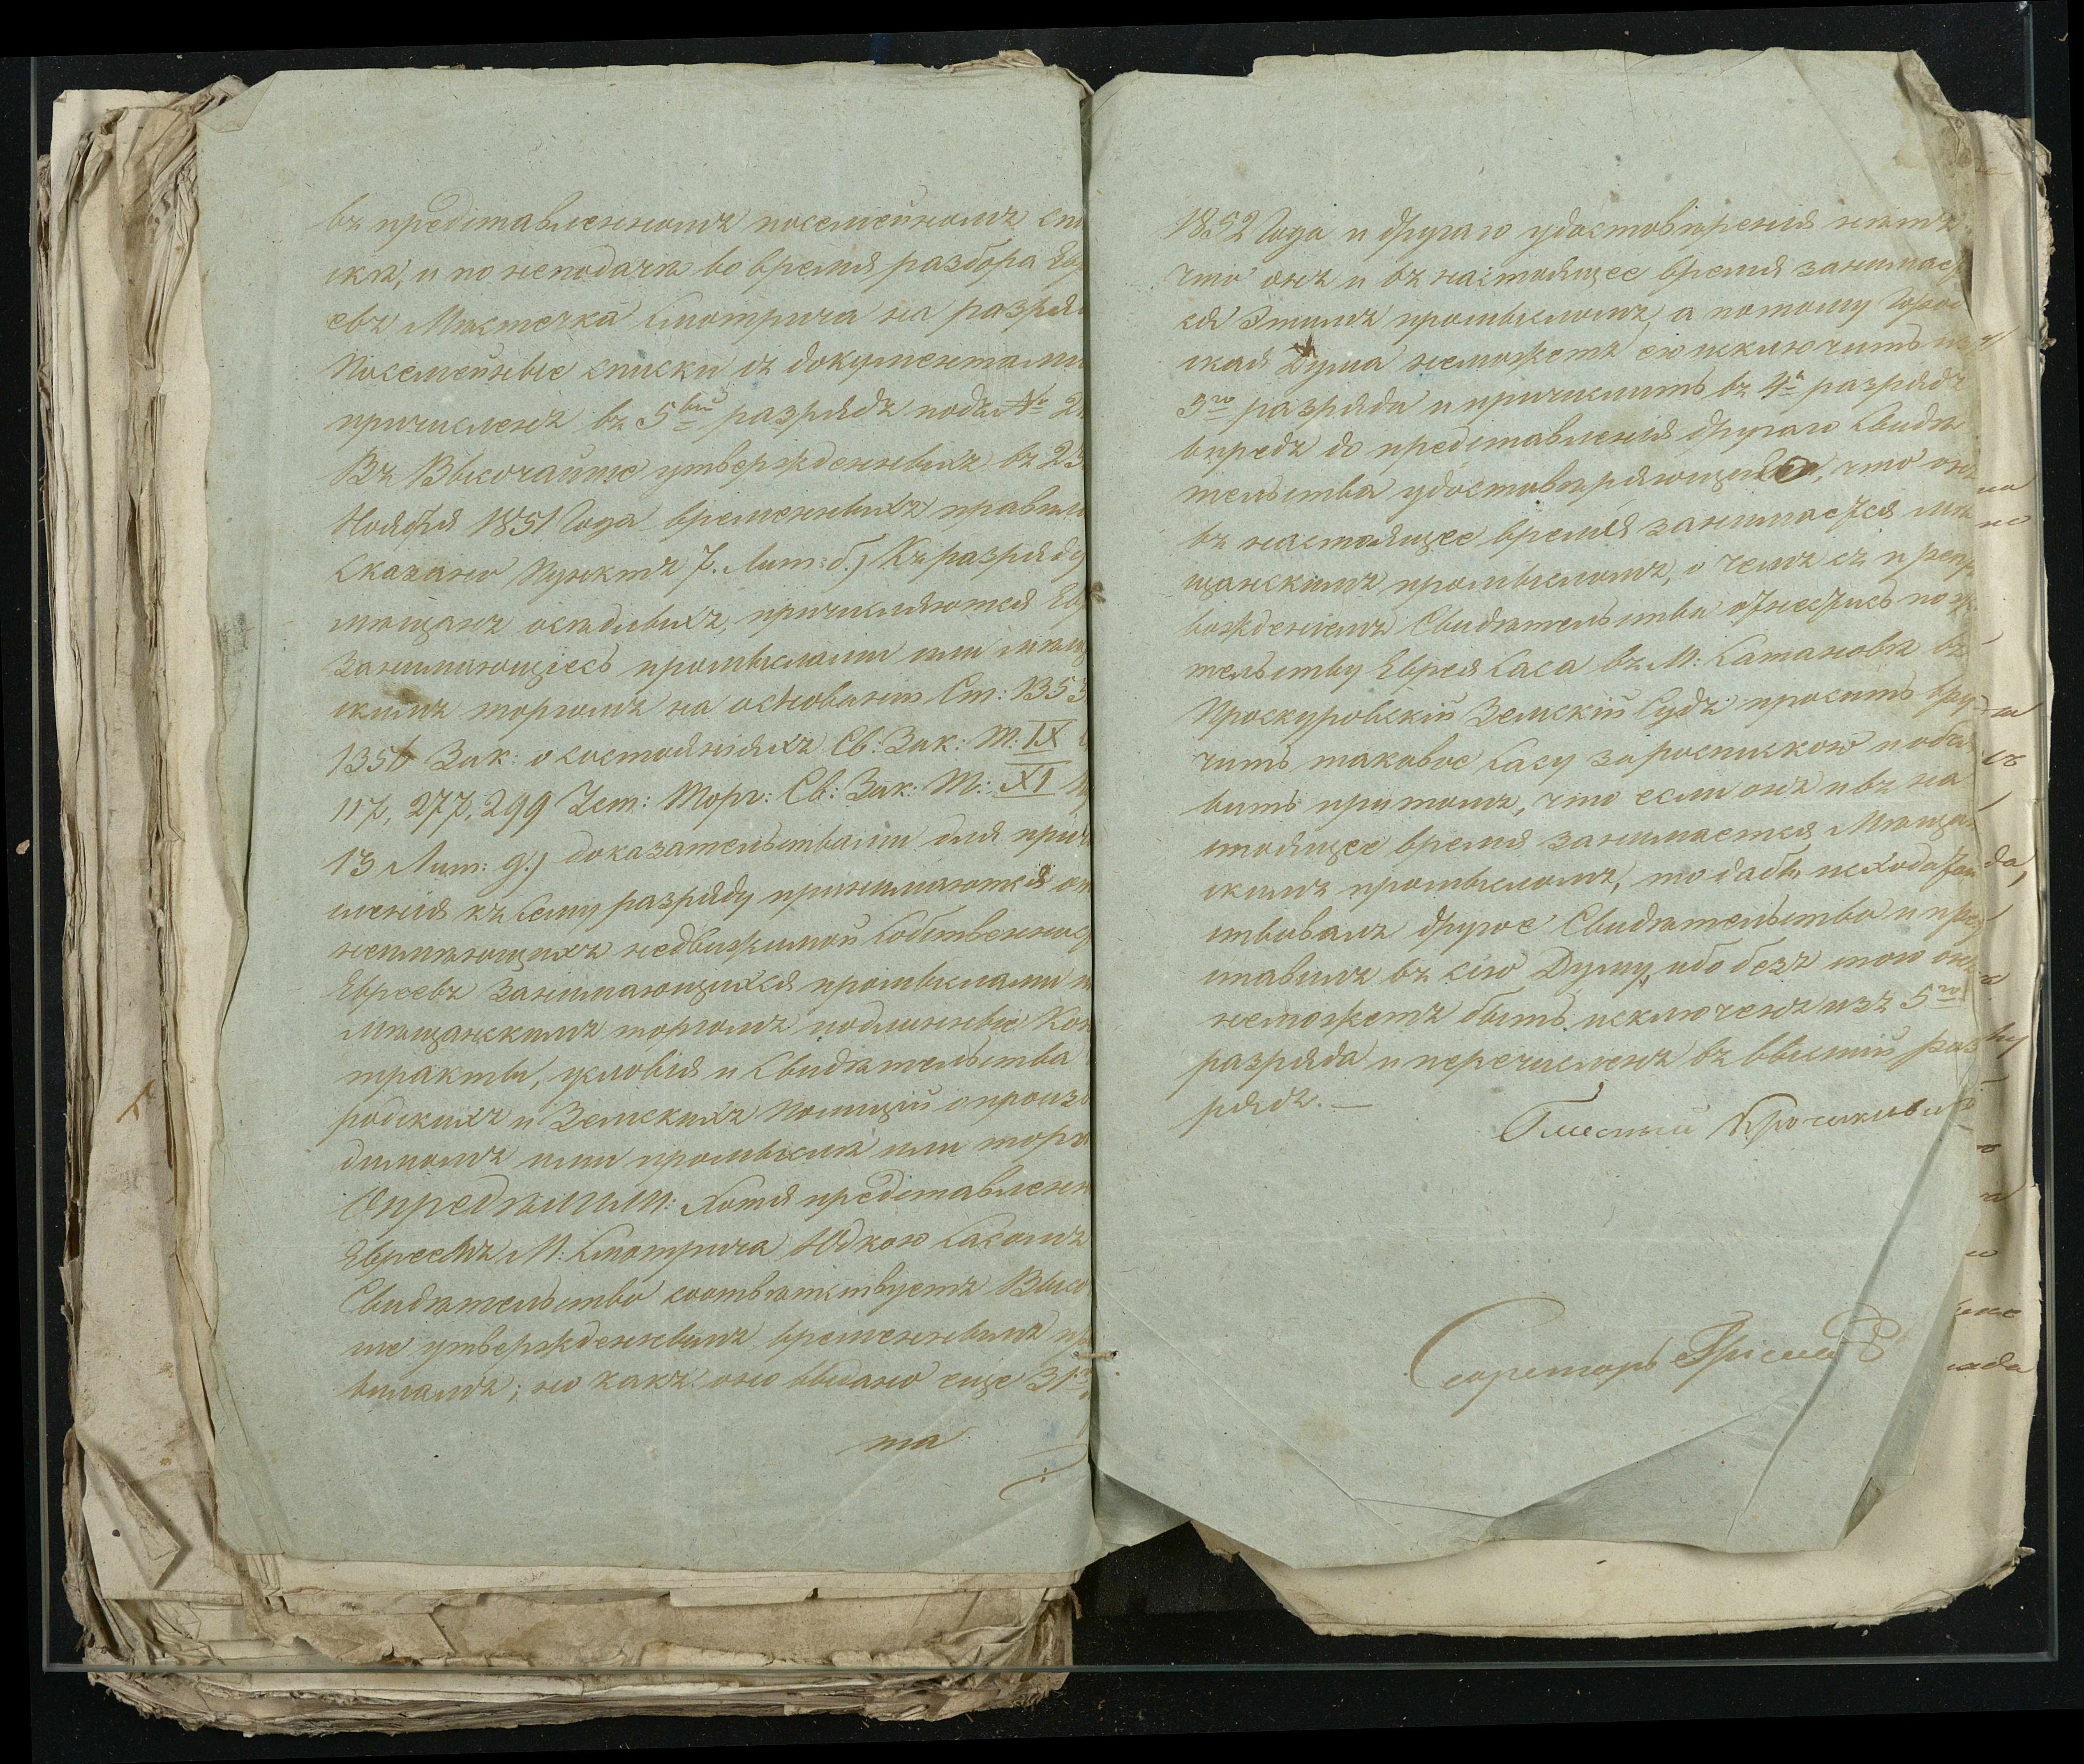 въ представленномъ посемейномъ спи
скѣ, и по неподачѣ во время разбора Евр
евъ Мѣстечка Смотрича на разряды
Посемейные списки съ документами
причисленъ въ 5ый разрядъ подъ № 2
Въ Высочайше утвержденныхъ въ 23
Ноября 1851 Года временныхъ правил
Сказано Пунктъ 7. Лит: б.) Къ разряду
мѣщанъ осѣдлыхъ, причисляются Евр
Занимающіесь промыслами или мѣщ
скимъ торгомъ на основаніи Ст: 1353
1356 Зак: о состояніяхъ Св: Зак: Т: IX
117, 277, 299 Уст: Торг: Св: Зак: Т: XI
13 Лит: д.) доказательствами для прич
сленія къ сему разряду принимаются от
неимѣющихъ недвижимой собственнос
Евреевъ Занимающихся промыслами и
Мѣщанскимъ торгомъ подлинные Кон
тракты, условія и Свидѣтельства
родскихъ и Земскихъ Полицій о произв
димомъ ими промыслѣ или торгѣ
Опредѣлили: Хотя представленн
Евреемъ М: Смотрича Юдкою Касомъ
Свидѣтельство соотвѣтствуетъ Высо
ше утвержденнымъ временнымъ пр
виламъ; но какъ оно выдано еще 31
та
1852 Года и другаго удостовѣренія нѣтъ
что онъ и въ настоящее время занимает
ся Этимъ промысломъ, а потому Город
ская Дума неможетъ его исключить из
5го разряда и причислить въ 4й разрядъ
впредь до представленія другаго Свидѣ
тельства удостовѣряющаго, что онъ
въ настоящее время занимается мѣ
щанскимъ промысломъ, о чемъ съ препр
вожденіемъ Свидѣтельства отнестись по ж.
тельству Еврея Каса въ М: Сатановѣ въ
Проскуровскій Земскій Судъ: просить вру
чить таковое Касу за роспискою и объя
вить притомъ, что если онъ и въ на
стоящее время занимается Мѣщан
скимъ промысломъ, то дабы исходатай
ствовалъ другое Свидѣтельство и пред
ставилъ въ сію Думу, ибо безъ того онъ
неможетъ быть исключенъ изъ 5го
разряда и перечисленъ въ высшій раз
рядъ. —
Гласный
Секретарь